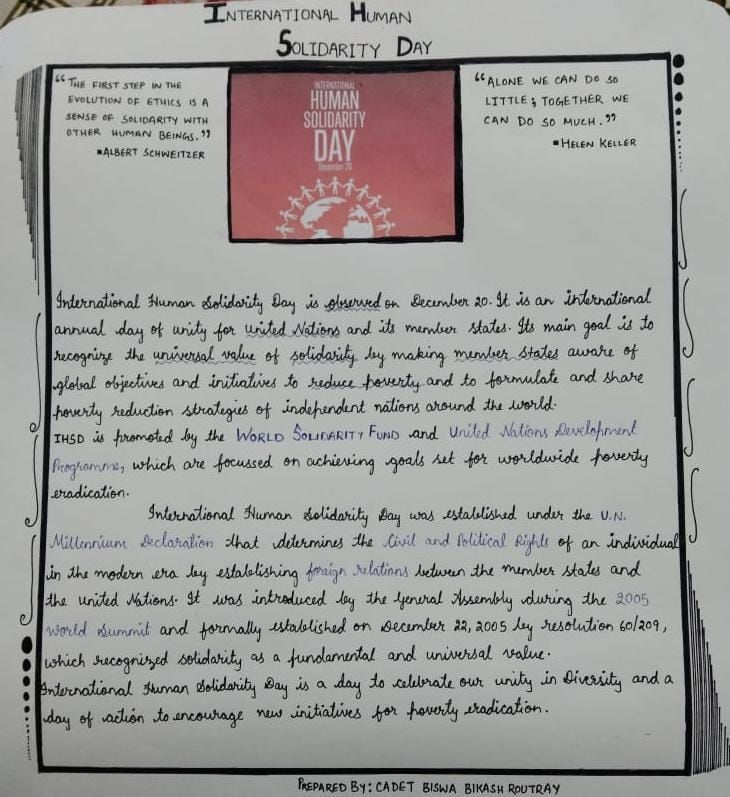 INTERNATIONAL HUMAN
SOLIDARITY DAY
“THE FIRST STEP IN THE
EVOLUTION OF ETHICS IS A
SENSE OF SOLIDARITY WITH
OTHER HUMAN BEINGS.”
▪ALBERT SCHWEITZER
INTERNATIONAL
HUMAN
SOLIDARITY
DAY
December 20
“ALONE WE CAN DO SO
LITTLE; TOGETHER WE
CAN DO SO MUCH.”
▪HELEN KELLER
International Human Solidarity Day is observed on December 20. It is an international
annual day of unity for United Nations and its member states. Its main goal is to
recognize the universal value of solidarity by making member states aware of
global objectives and initiatives to reduce poverty and to formulate and share
poverty reduction strategies of independent nations around the world.
IHSD is promoted by the WORLD SOLIDARITY FUND and United Nations Development
Programme, which are focussed on achieving goals set for worldwide poverty
eradication.
International Human Solidarity Day was established under the U.N.
Millennium Declaration that determines the Civil and Political Rights of an individual
in the modern era by establishing foreign relations between the member states and
the united Nations. It was introduced by the General Assembly during the 2005
World Summit and formally established on December 22, 2005 by resolution 60/209,
which recognized solidarity as a fundamental and universal value.
International Human Solidarity Day is a day to celebrate our unity in Diversity and a
day of action to encourage new initiatives for poverty eradication.
PREPARED BY: CADET BISWA BIKASH ROUTRAY